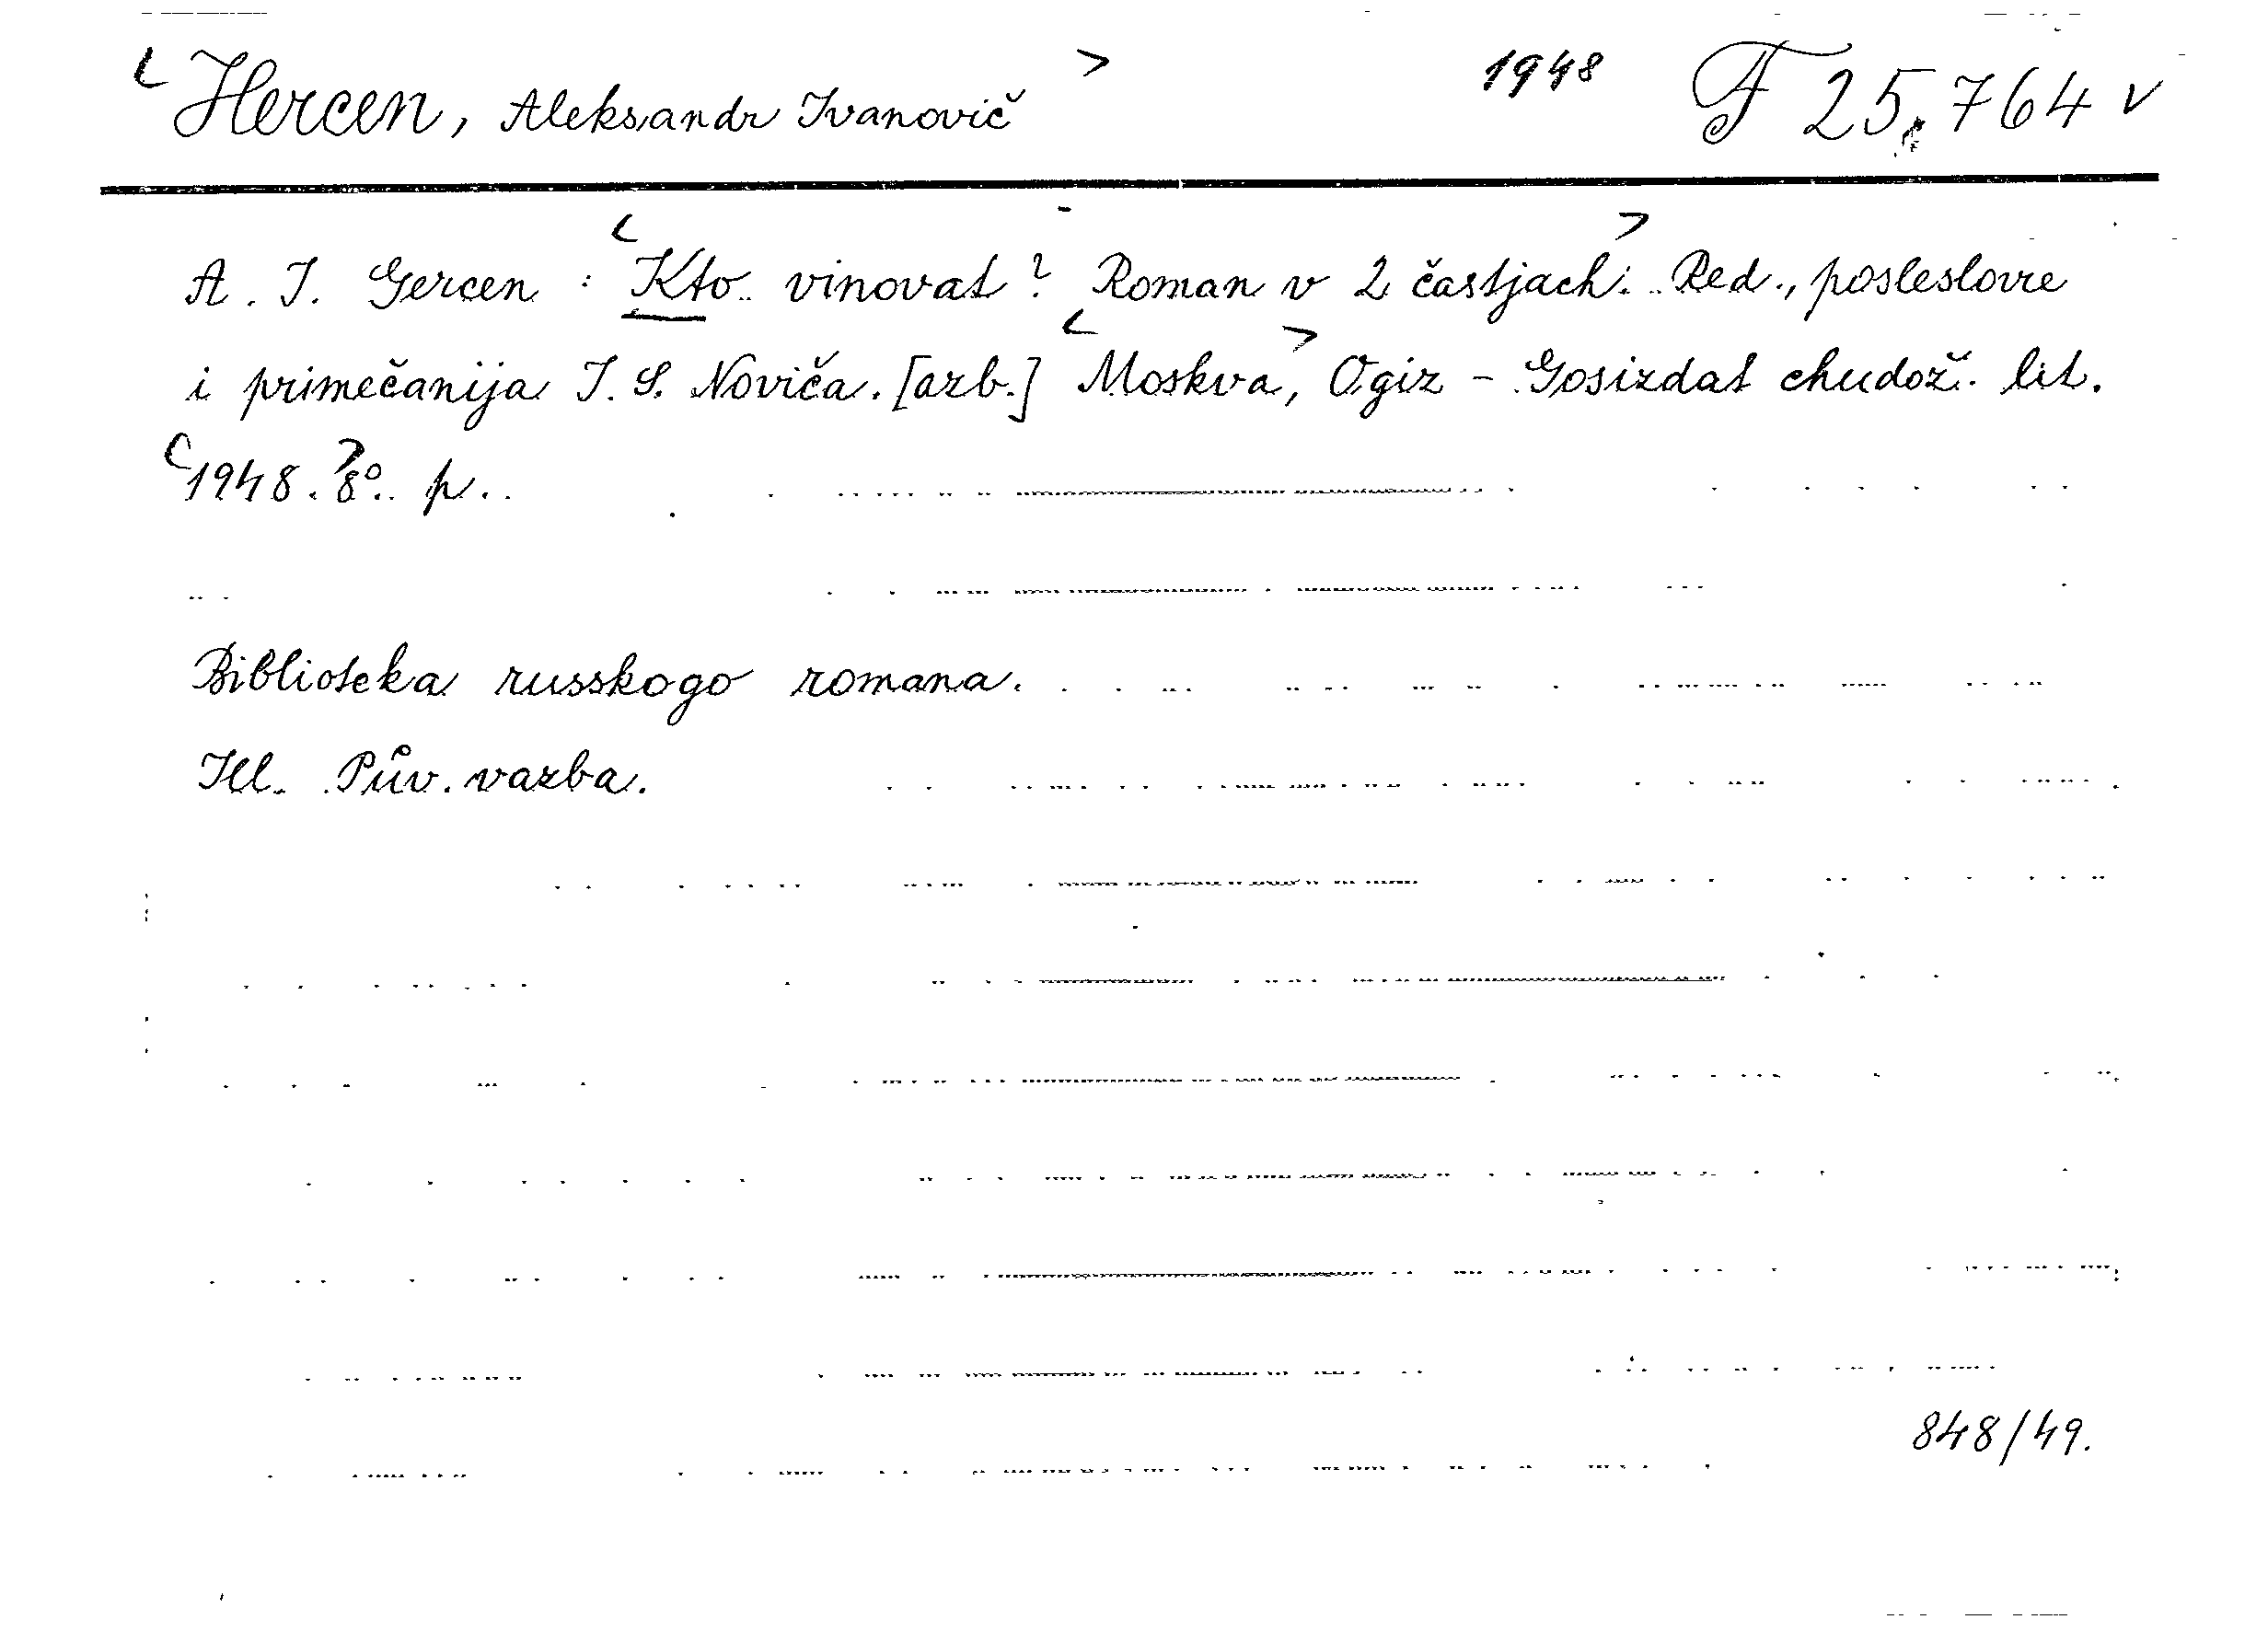 <Hercen, Aleksandr Ivanovič> 1948 F 25.764 v
A. I. Gercen : <Kto vinovat? Roman v 2 častjach>. Red., posleslovie
i primečanija I. S. Noviča. [azb.] <Moskva>, Ogiz - Gosizdat chudož. lit.
<1948.> 8°. p.
Biblioteka russkogo romana.
Ill. Pův. vazba.
848/49.